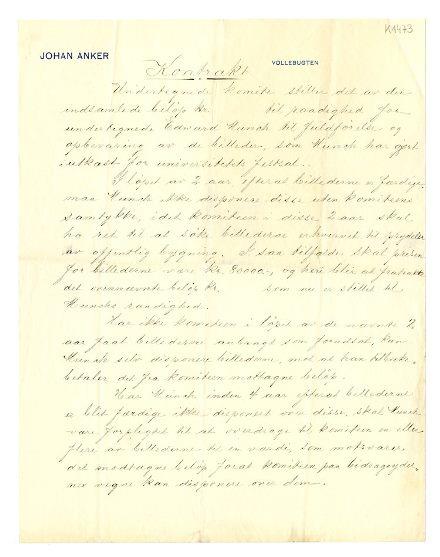 K1473
JOHAN ANKER
VOLLEBUGTEN
Kontrakt
Undertegnede komite stiller det av den
indsamlede beløp kr. til raadighed for
undertegnede Edvard Munch til fuldførelse og
opbevaring av de billeder, som Munch har gjort
utkast for universitetets festsal.
I løpet av 2 aar efterat billederne er færdige
maa Munch ikke disponere disse uten komiteens
samtykke, idet komiteen i disse 2 aar skal
ha ret til at søke billederne erhvervet til prydelse
av offentlig bygning. I saa tilfælde skal prisen
for billederne være kr. 80000, og heri blir at fratrække
det ovennævnte beløp kr. som nu er stillet til
Munchs raadighed.
Har ikke komiteen i løpet av de nævnte 2
aar faat billederne anbragt som forudsat, kan
Munch selv disponere billederne, mot at han tilbake-
betaler det fra komiteen mottagne beløp.
Har Munch inden 4 aar efterat billederne
er blit færdige ikke disponert over disse, skal Munch
være forpligtet til at overdrage til komiteen en eller
flere av billederne til en værdi, som motsvarer
det modtagne beløp forat komiteen paa bidragsyder-
nes vegne kan disponere over dem.